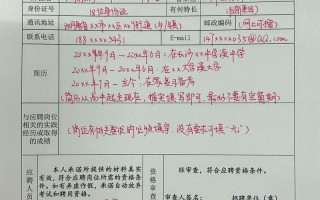 身份证号 18位身份证 有何特长
通讯地址 湖南省xx市xx区xx街道(乡/镇) 邮政编码 (网上可搜)
联系电话 188xxxxx343 E-mail 147xxxx03@qq.com
简历
20xx年9月-20xx年6月:在长沙xx中学读中学
20xx年9月-20xx年6月:在xx大学读大学
20xx年7月-至今:在家
(简历从高中起至现在,据实填写即可,最好不要有空窗期)
与应聘岗位
相关的实践
经历或取得
的成绩
(岗位有相关要求的必须填写,没有要求可填“无”)
应聘人员
本人承诺所提供的材料真实
有效,符合应聘岗位所需的资格条
件。如有弄虚作假,承诺自动放弃
考试和聘
资格审
经审查,符合应聘资格条件。
审查人签名: 招聘单位(章)